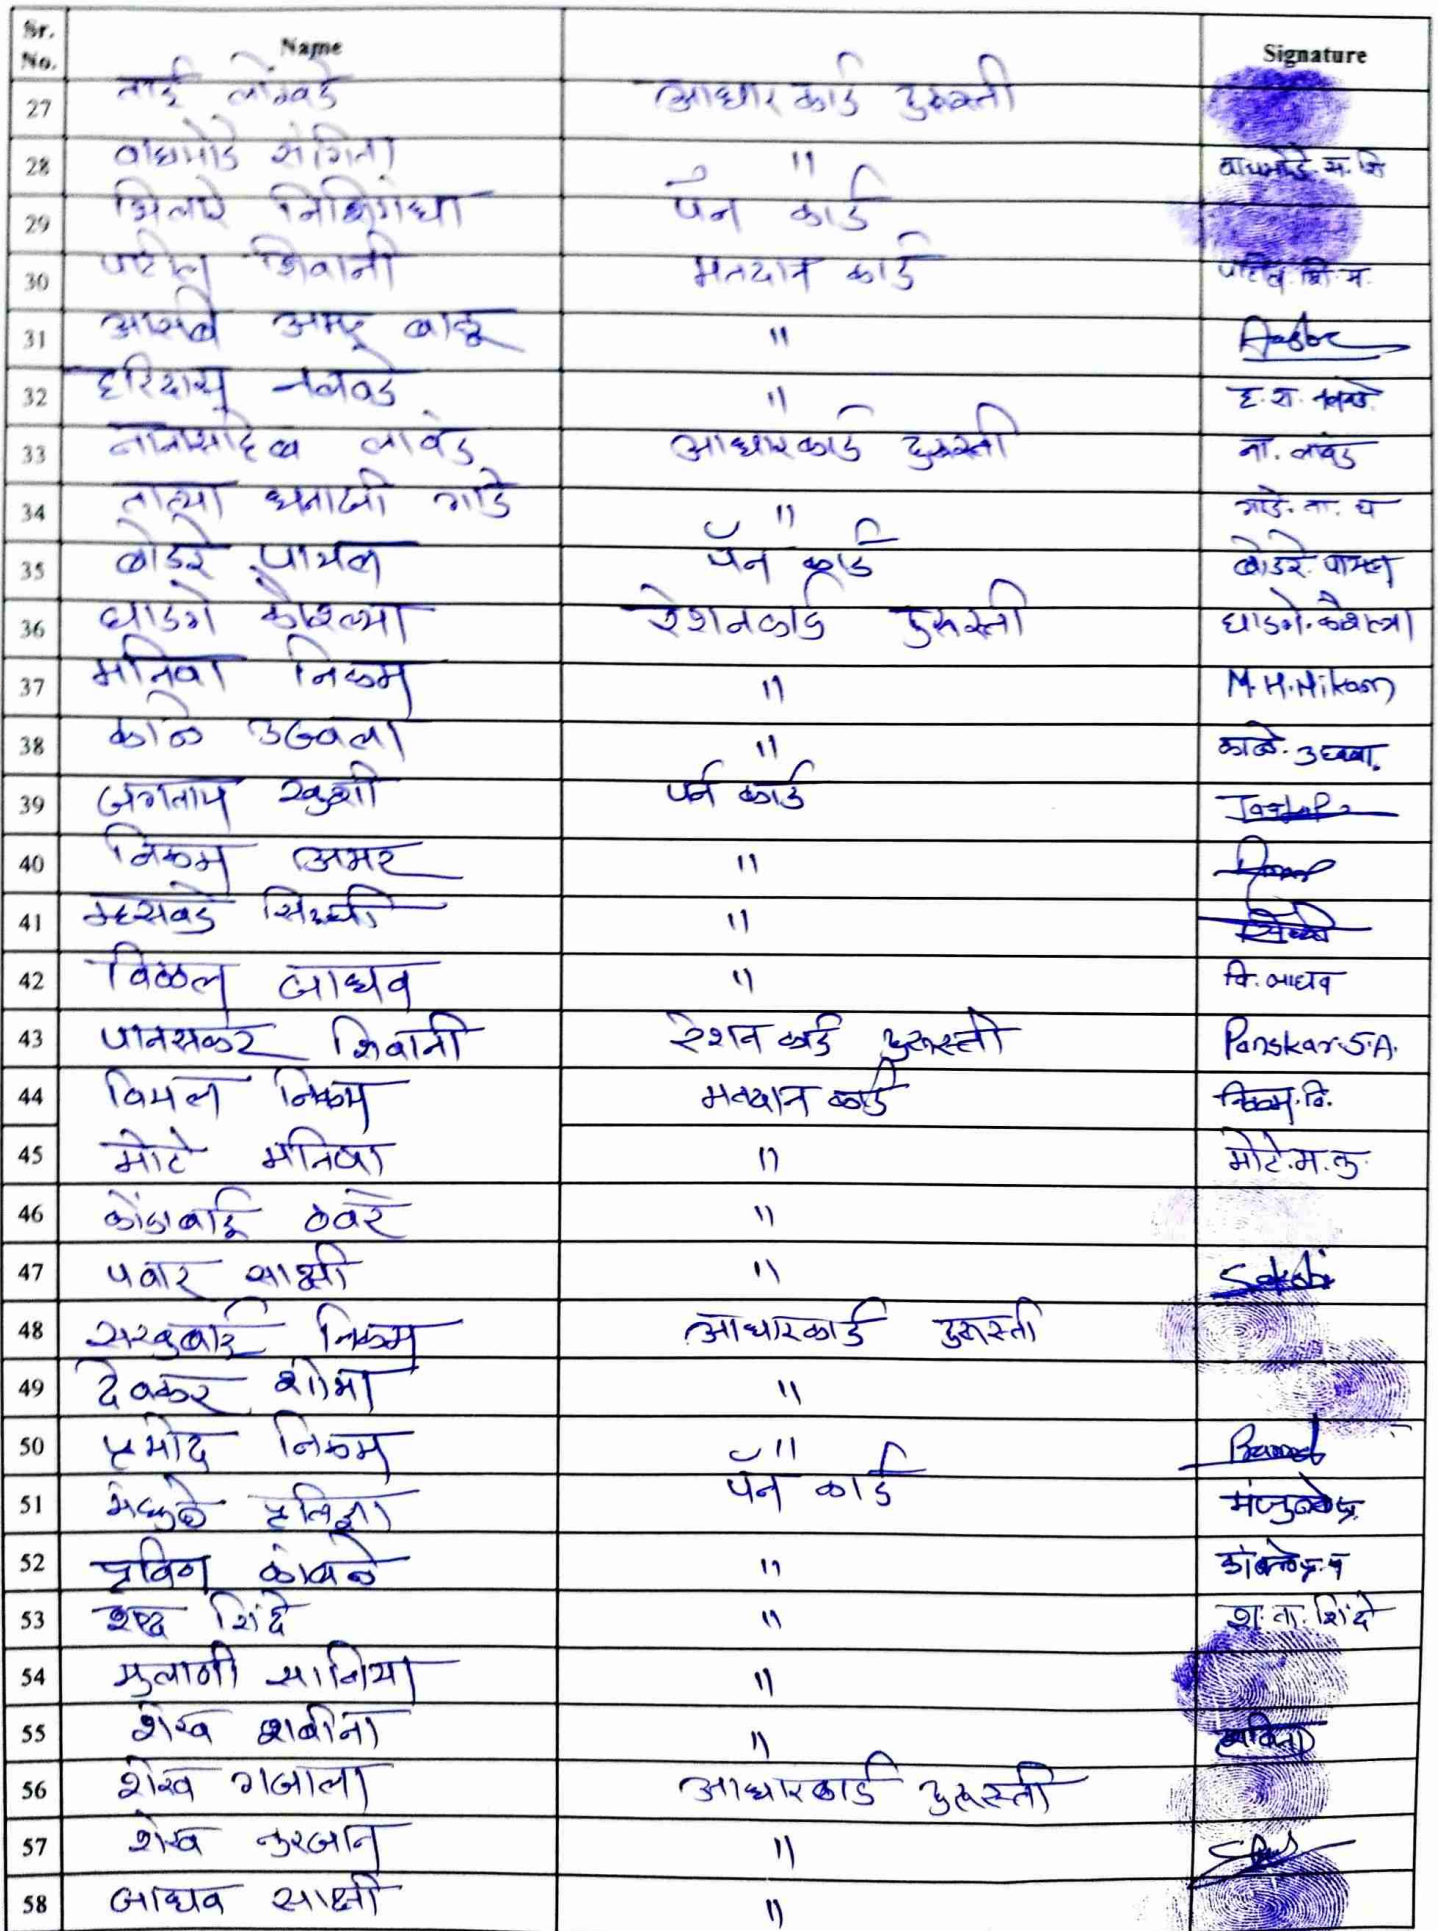 Sr. No. Name Signature
27 ताई लोखंडे आधार कार्ड दुरुस्ती
28 वाघमोडे संगिता " वाघमोडे. स. शि
29 निशिगंधा पॅन कार्ड
30 पाटील शिवानी मतदान कार्ड पाटील. शि. म.
31 आसबे बाळू "
32 हरिदास नलवडे " ह. रा. नलवडे
33 नानासाहेब लावंड आधारकार्ड दुरुस्ती ना. लावंड
34 तात्या धनाजी गाडे " गाडे. ता. ध
35 बोडरे पायल पॅन कार्ड बोडरे. पायल
36 घाडगे कौशल्या रेशनकार्ड दुरुस्ती घाडगे. कौशल्या
37 मनिषा निकम " M.H.Nikam
38 काळे उज्वला " काळे. उज्वला.
39 जगताप खुशी पॅन कार्ड Jagtap
40 निकम अमर "
41 म्हसवडे सिध्दी "
42 विठ्ठल जाधव " वि. जाधव
43 पानसकर शिवानी रेशन कार्ड दुरुस्ती Panskar.S.A.
44 विमल निकम मतदान कार्ड निकम. वि.
45 मोटे मनिषा " मोटे. म. कु.
46 कोंडाबाई ठवरे "
47 पवार साक्षी " Sakshi
48 सखुबाई निकम आधारकार्ड दुरुस्ती
49 देवकर शोभा "
50 प्रमोद निकम "
51 प्रतिज्ञा पॅन कार्ड
52 प्रविण कांबळे "
53 शिंदे " श. ता. शिंदे
54 मुलाणी सानिया "
55 शेख शबीना "
56 शेख गजाला आधारकार्ड दुरुस्ती
57 शेख नुरजान "
58 जाधव साक्षी "